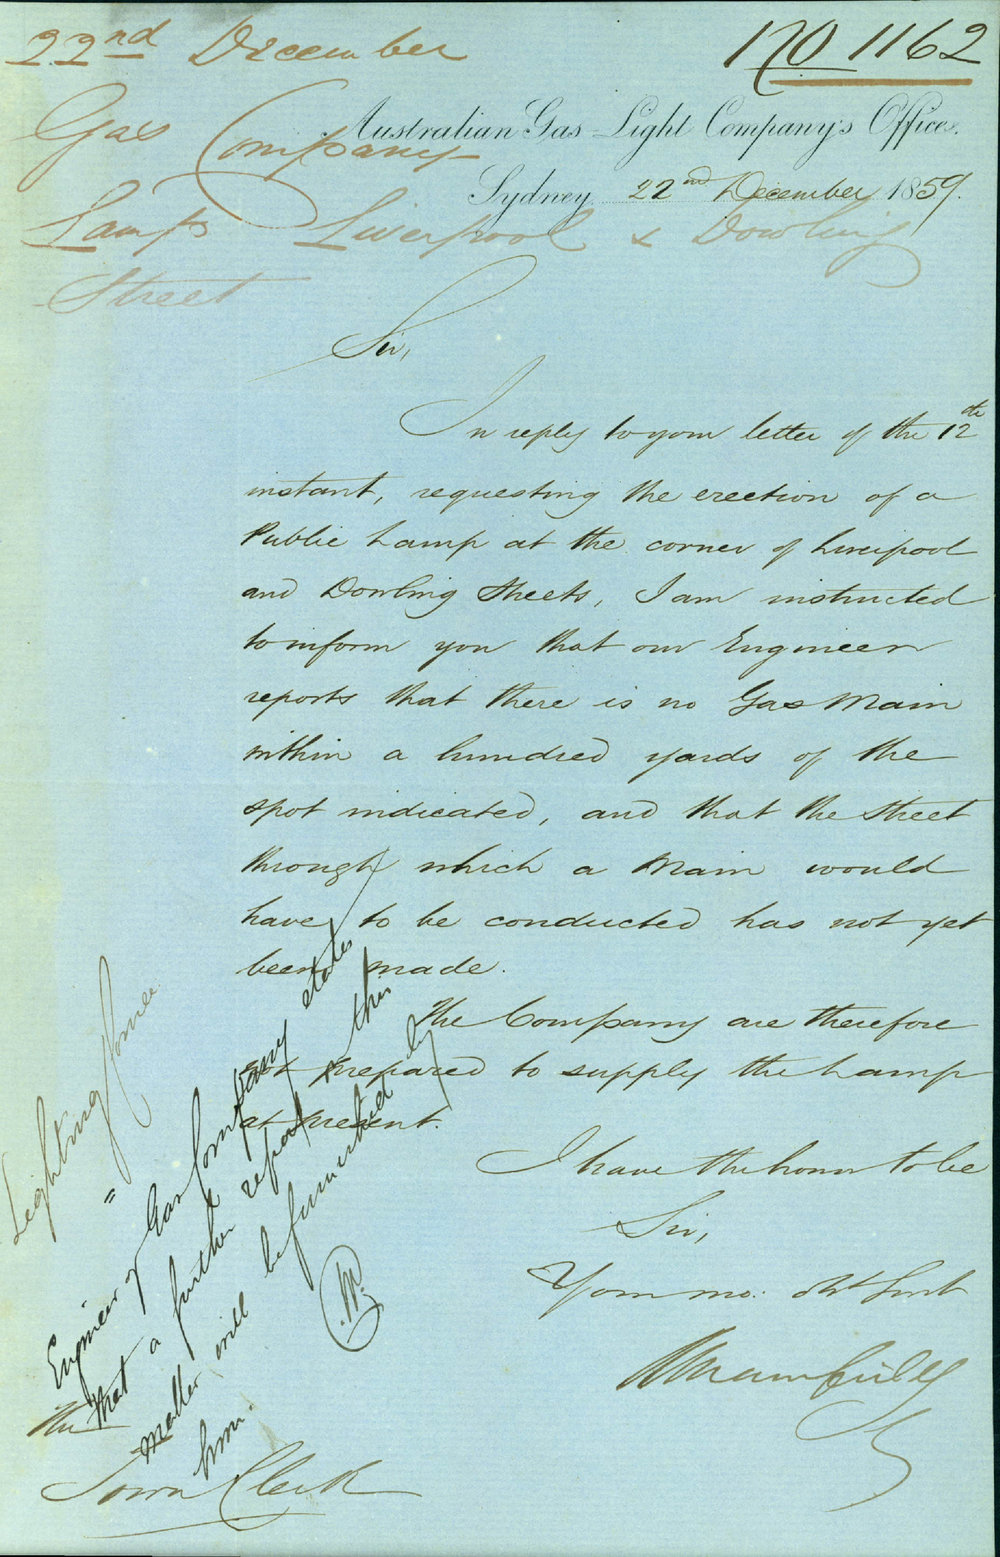 22nd December
No 1162
Gas Company
Lamps Liverpool & Dowling
Street
Australian Gas Light Company's Office.
Sydney 22nd December 1859.
Sir,
In reply to your letter of the 12th
instant, requesting the erection of a
Public Lamp at the corner of Liverpool
and Dowling Streets, I am instructed
to inform you that our Engineer
reports that there is no Gas Main
within a hundred yards of the
spot indicated, and that the street
through which a Main would
have to be conducted has not yet
been made.
The Company are therefore
not prepared to supply the Lamp
at present.
I have the honor to be
Sir,
Your mo: obt Servt
The
Town Clerk
Lighting Comee
"
Engineer of Gas Company states
that a further report on this
matter will be furnished by
him.